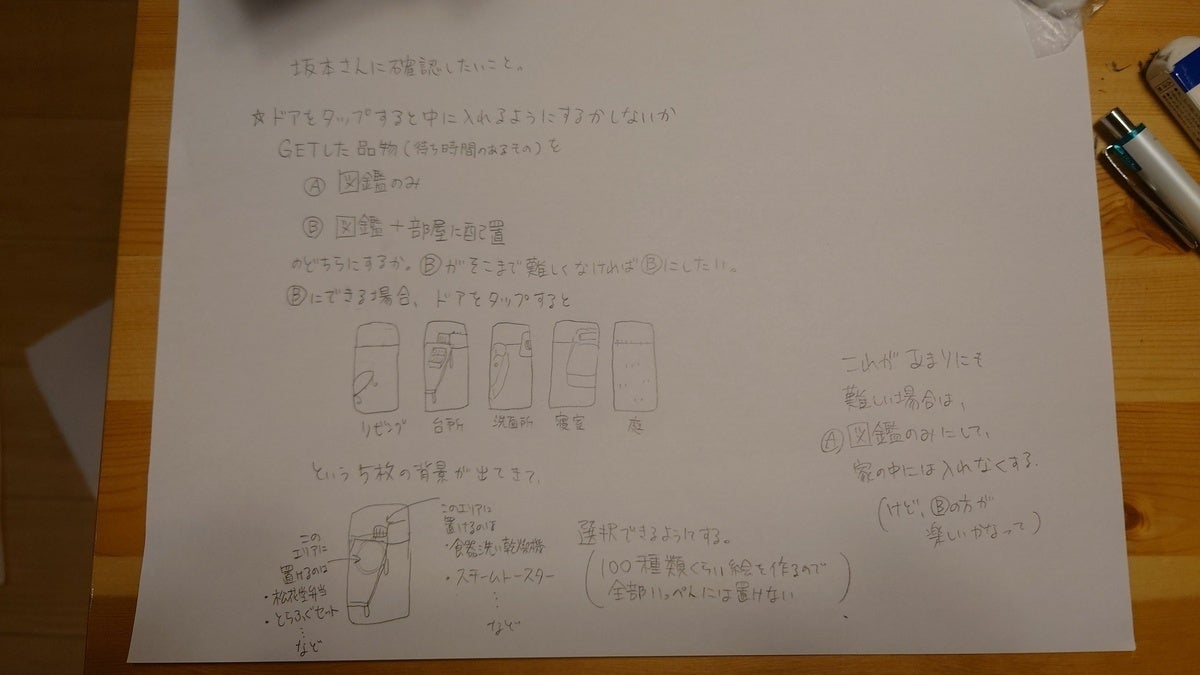 坂本さんに確認したいこと。
☆ドアをタップすると中に入れるようにするかしないか
GETした品物(待ち時間のあるもの)を
Ⓐ 図鑑のみ
Ⓑ 図鑑+部屋に配置
のどちらにするか。Ⓑがそこまで難しくなければⒷにしたい。
Ⓑにできる場合、ドアをタップすると
リビング 台所 洗面所 寝室 庭
という5枚の背景が出てきて、
この
エリアに
置けるのは
・松花堂弁当
・とらふぐセット
⋮
など
このエリアに
置けるのは
・食器洗い乾燥機
・スチームトースター
⋮
など
選択できるようにする。
(100種類くらい絵を作るので
全部いっぺんには置けない)
これがあまりにも
難しい場合は、
Ⓐ図鑑のみにして、
家の中には入れなくする.
(けど、Ⓑの方が
楽しいかなって)